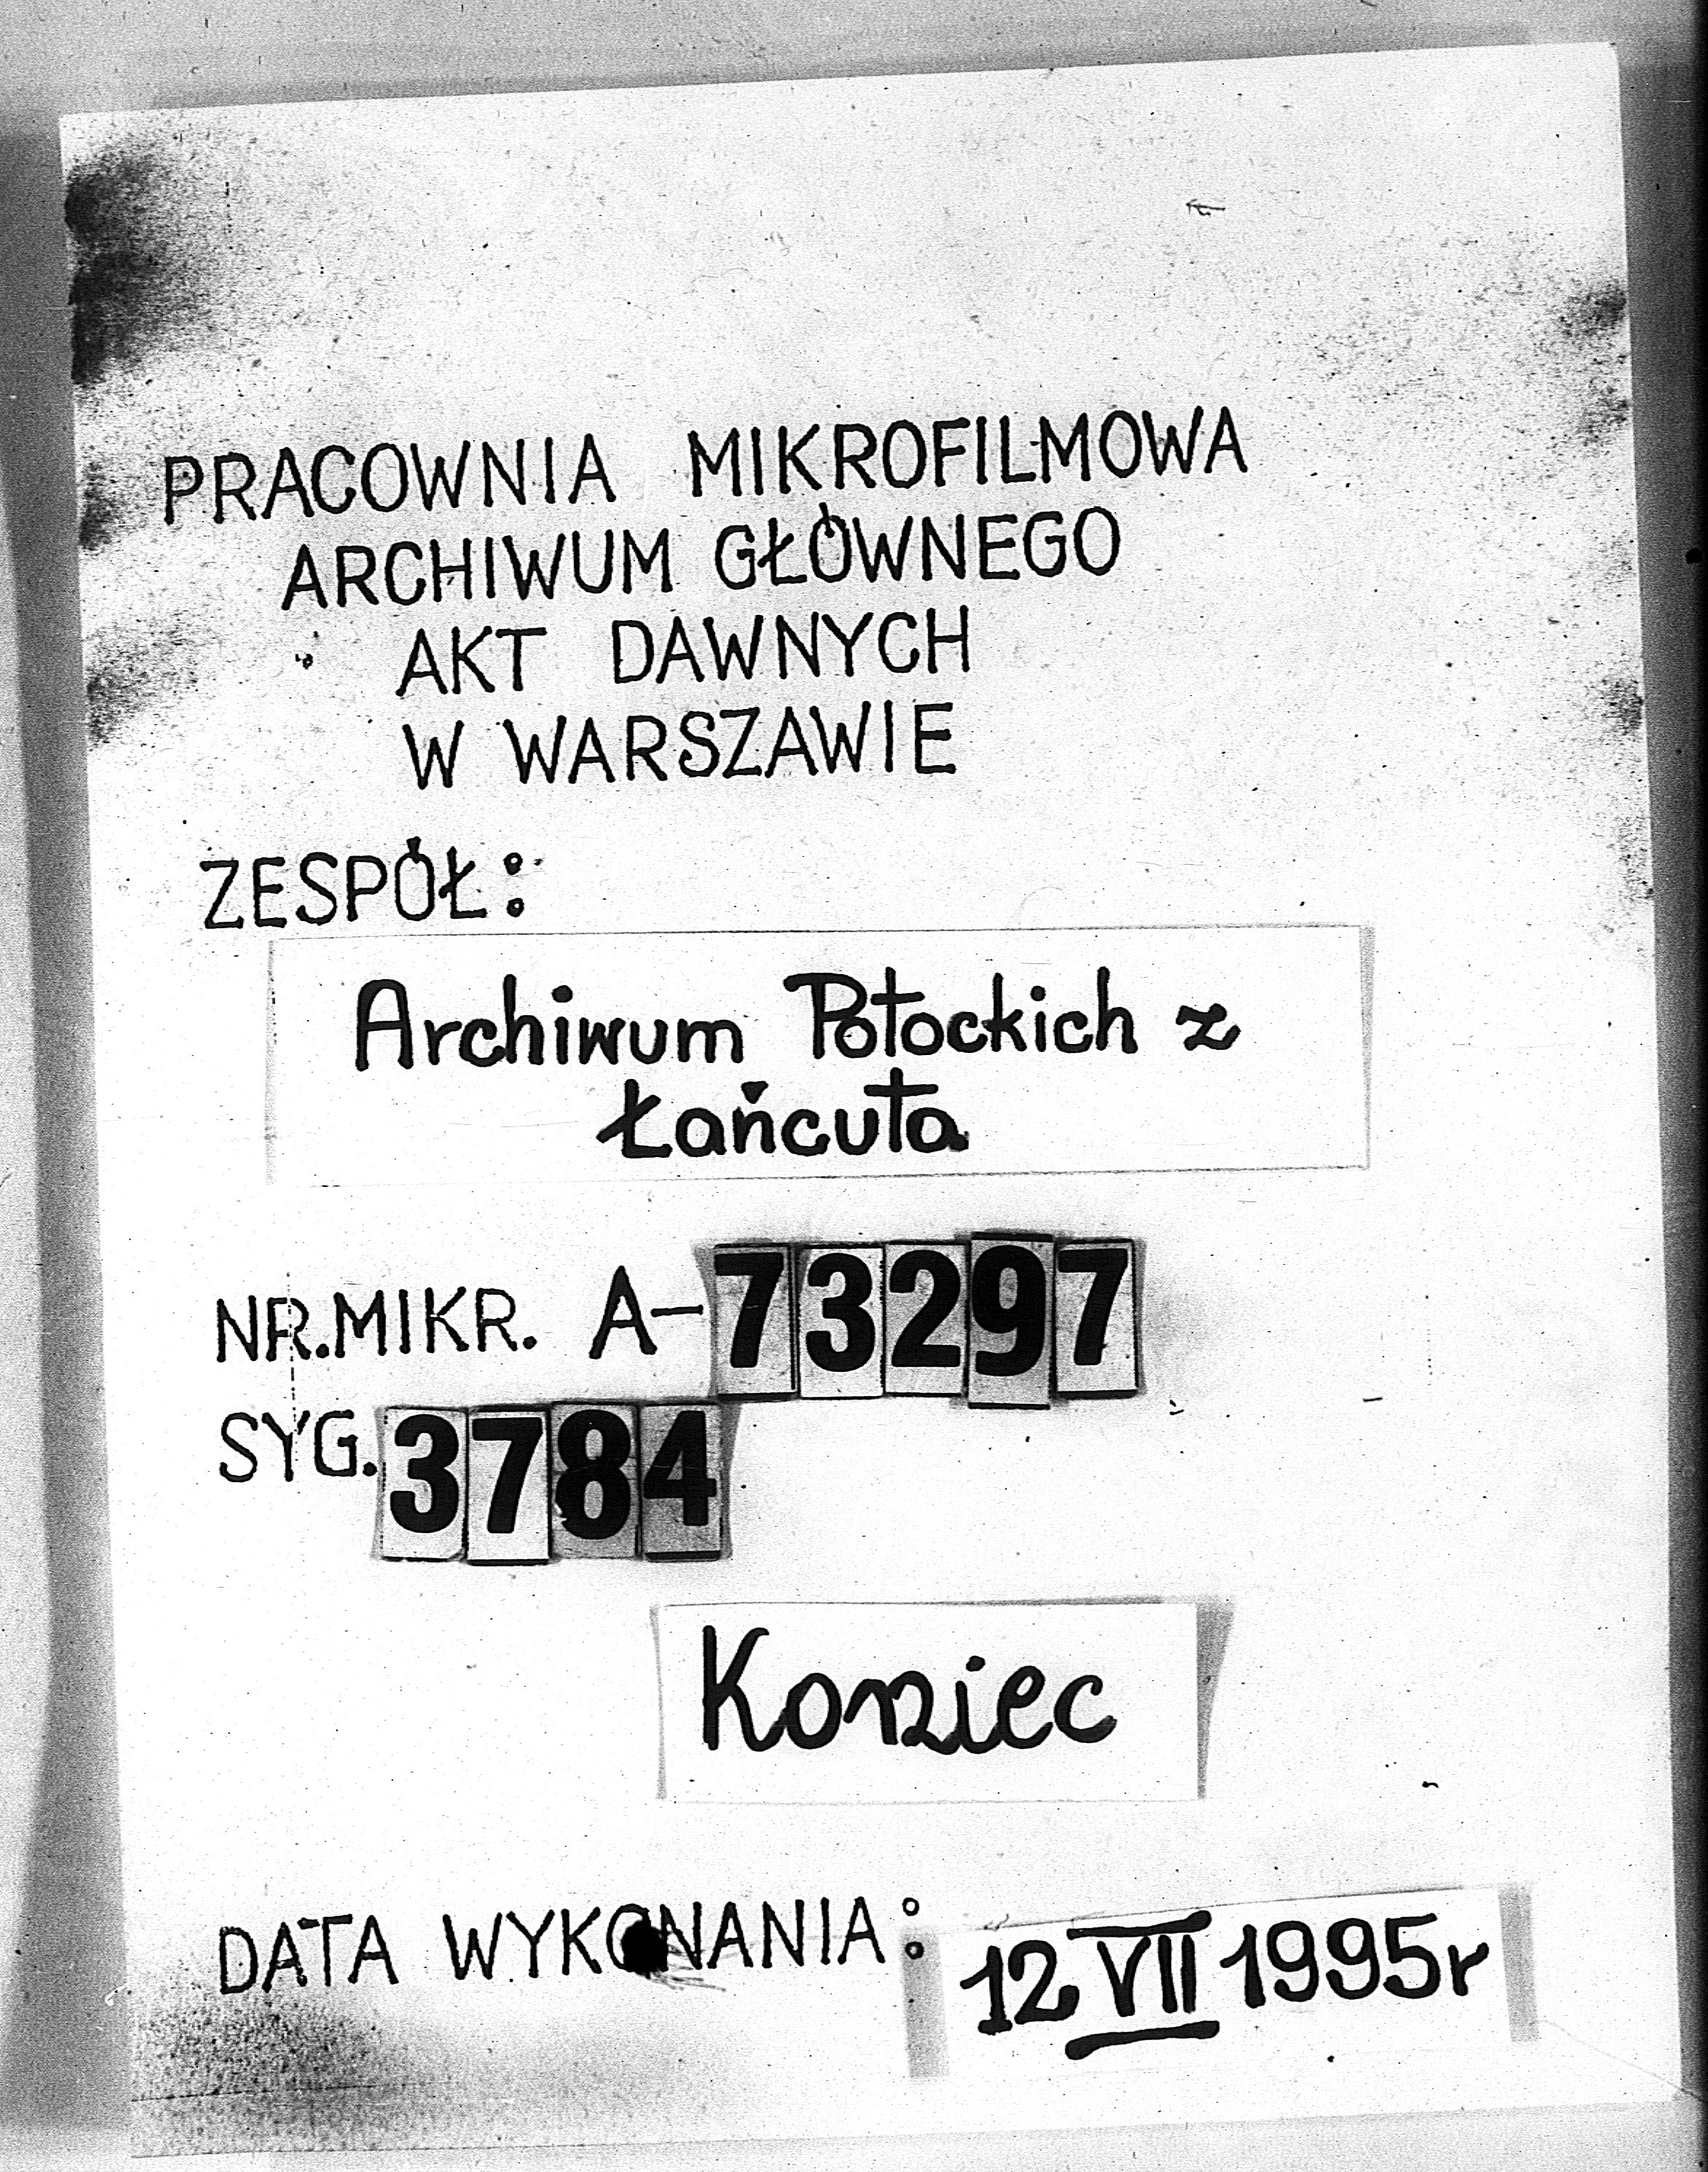 PRACOWNIA MIKROFILMOWA
ARCHIWUM GŁÓWNEGO
AKT DAWNYCH
W WARSZAWIE
ZESPÓŁ:
Archiwum Potockich z
Łańcuta
NR.MIKR. A-73297
SYG. 3784
Koniec
DATA WYKONANIA: 12 VII 1995r